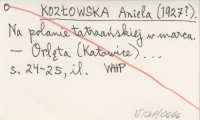 O KOZŁOWSKA Aniela (1927?).
Na polanie tatrzańskiej w marcu.
— Orlęta (Katowice) ...
s. 24-25, il. WHP